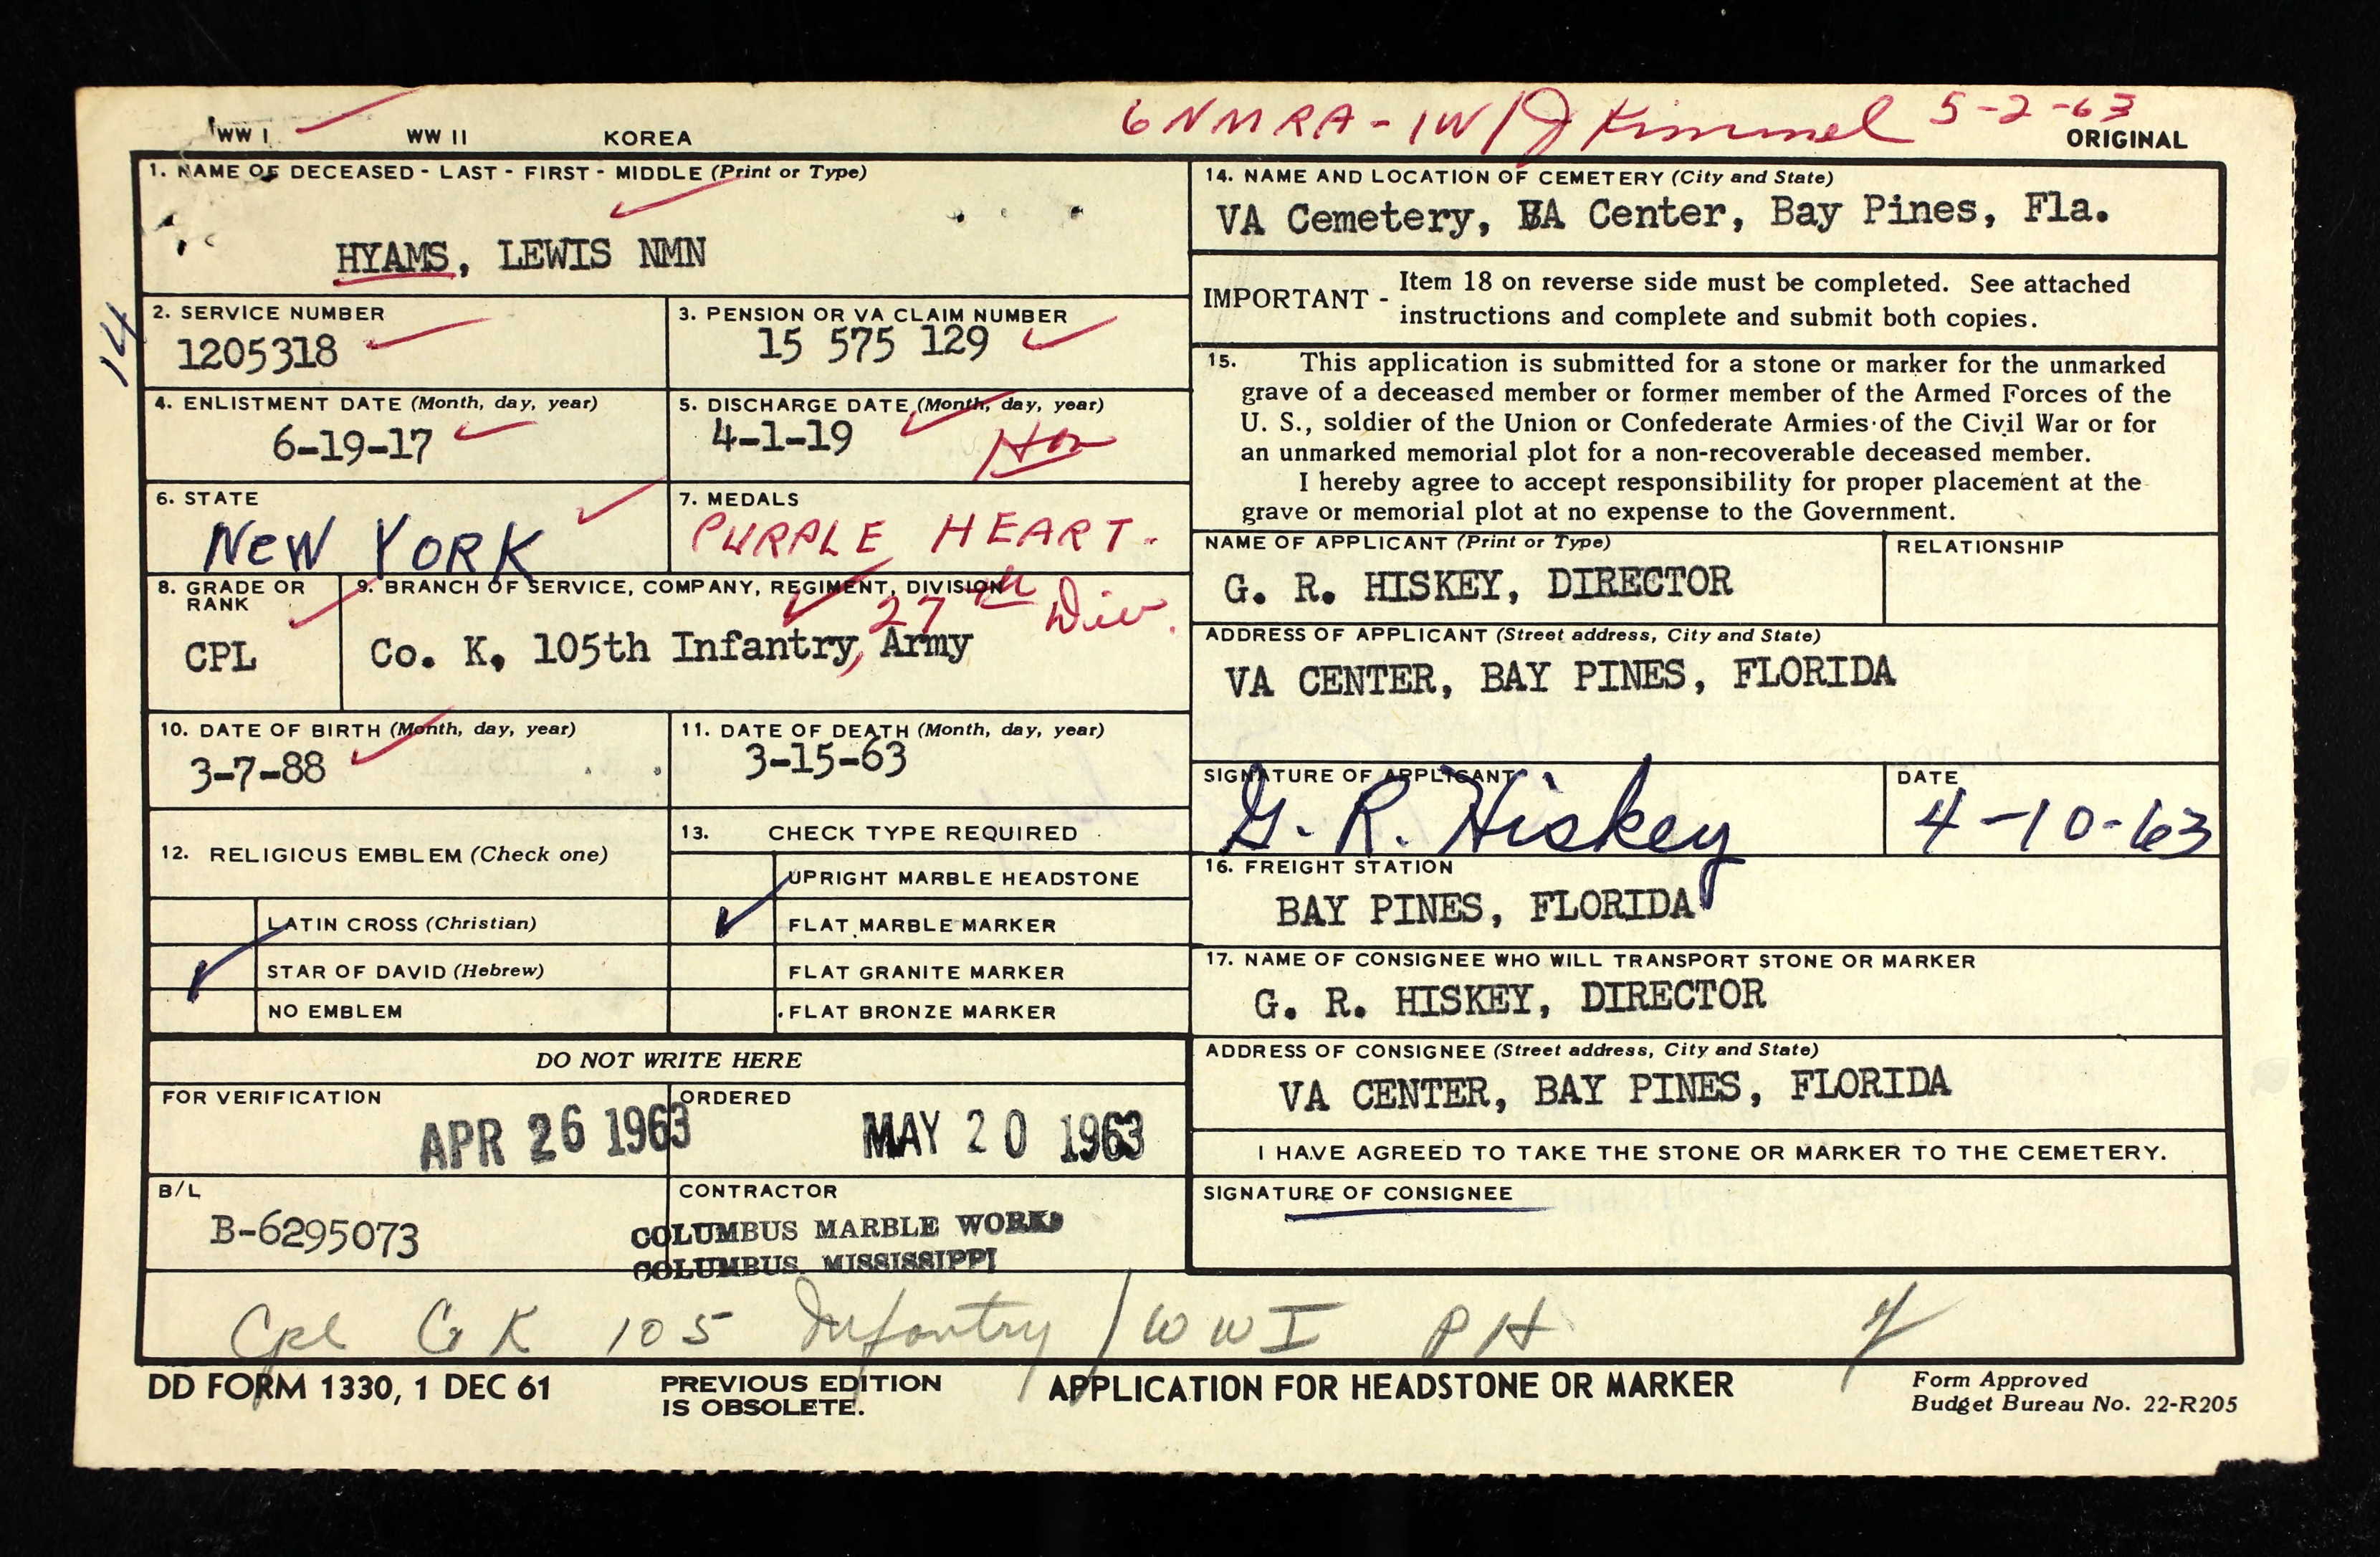 WW I WW II KOREA
6NMRA-1W/J Kimmel 5-2-63
ORIGINAL
1. NAME OF DECEASED - LAST - FIRST - MIDDLE (Print or Type)
HYAMS, LEWIS NMN
14
2. SERVICE NUMBER
1205318
3. PENSION OR VA CLAIM NUMBER
15 575 129
4. ENLISTMENT DATE (Month, day, year)
6-19-17
5. DISCHARGE DATE (Month, day, year)
4-1-19 Hon
6. STATE
NEW YORK
7. MEDALS
PURPLE HEART.
8. GRADE OR RANK
CPL
9. BRANCH OF SERVICE, COMPANY, REGIMENT, DIVISION
27th Div.
Co. K, 105th Infantry, Army
10. DATE OF BIRTH (Month, day, year)
3-7-88
11. DATE OF DEATH (Month, day, year)
3-15-63
12. RELIGIOUS EMBLEM (Check one)
LATIN CROSS (Christian)
STAR OF DAVID (Hebrew)
NO EMBLEM
13. CHECK TYPE REQUIRED
UPRIGHT MARBLE HEADSTONE
FLAT MARBLE MARKER
FLAT GRANITE MARKER
FLAT BRONZE MARKER
DO NOT WRITE HERE
FOR VERIFICATION
APR 26 1963
ORDERED
MAY 20 1963
B/L
B-6295073
CONTRACTOR
COLUMBUS MARBLE WORKS
COLUMBUS MISSISSIPPI
14. NAME AND LOCATION OF CEMETERY (City and State)
VA Cemetery, VA Center, Bay Pines, Fla.
IMPORTANT - Item 18 on reverse side must be completed. See attached
instructions and complete and submit both copies.
15. This application is submitted for a stone or marker for the unmarked
grave of a deceased member or former member of the Armed Forces of the
U. S., soldier of the Union or Confederate Armies of the Civil War or for
an unmarked memorial plot for a non-recoverable deceased member.
I hereby agree to accept responsibility for proper placement at the
grave or memorial plot at no expense to the Government.
NAME OF APPLICANT (Print or Type)
G. R. HISKEY, DIRECTOR
RELATIONSHIP
ADDRESS OF APPLICANT (Street address, City and State)
VA CENTER, BAY PINES, FLORIDA
SIGNATURE OF APPLICANT
G. R. Hiskey
DATE
4-10-63
16. FREIGHT STATION
BAY PINES, FLORIDA
17. NAME OF CONSIGNEE WHO WILL TRANSPORT STONE OR MARKER
G. R. HISKEY, DIRECTOR
ADDRESS OF CONSIGNEE (Street address, City and State)
VA CENTER, BAY PINES, FLORIDA
I HAVE AGREED TO TAKE THE STONE OR MARKER TO THE CEMETERY.
SIGNATURE OF CONSIGNEE
Cpl Co K 105 Infantry / WWI PH
DD FORM 1330, 1 DEC 61
PREVIOUS EDITION
IS OBSOLETE.
APPLICATION FOR HEADSTONE OR MARKER
Form Approved
Budget Bureau No. 22-R205